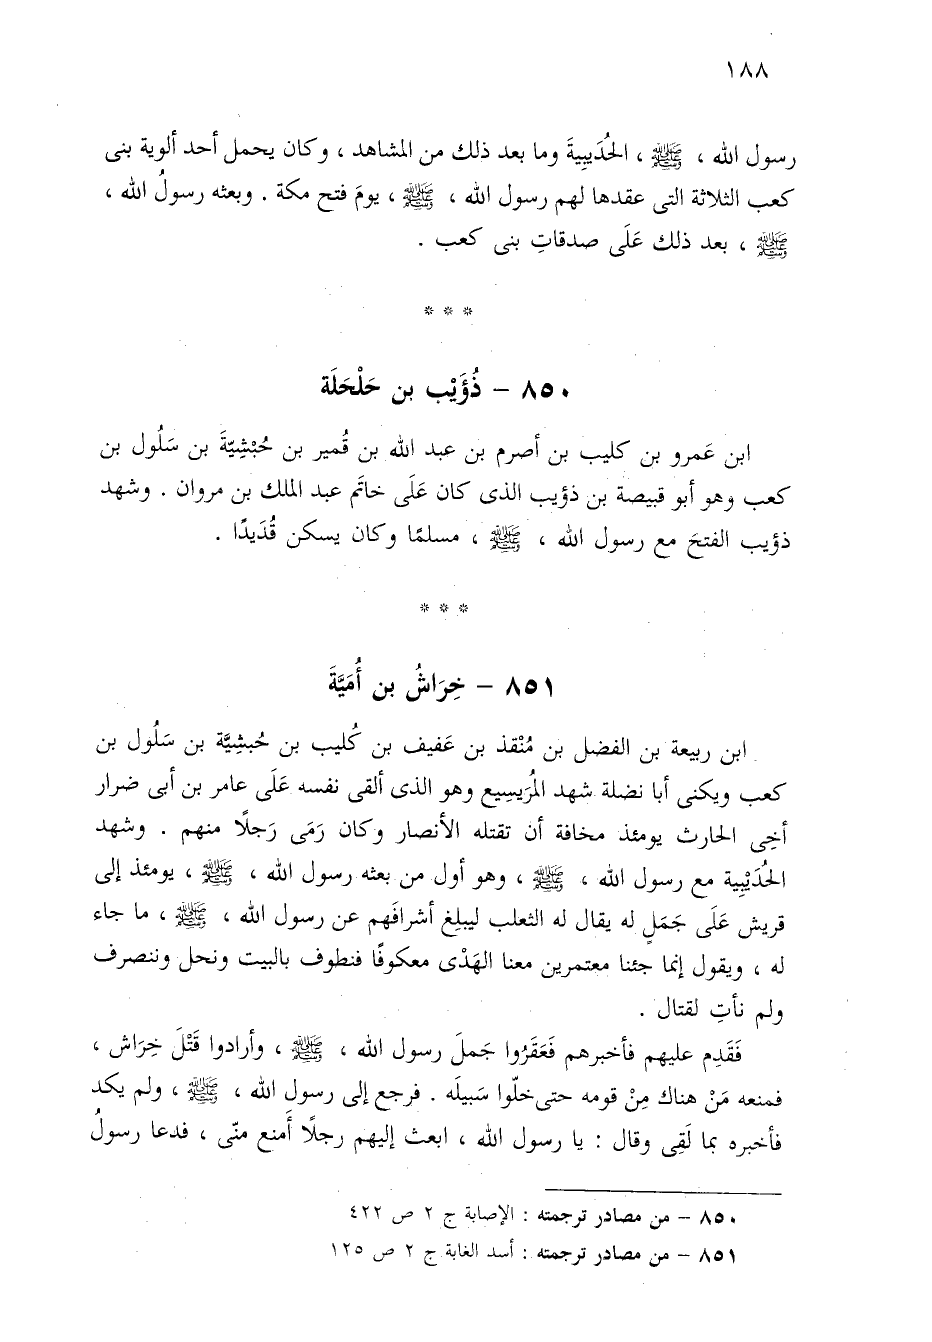 ١٨٨
رسول الله ، ﷺ ، الحُدَيبِيةَ وما بعد ذلك من المشاهد ، وكان يحمل أحد ألوية بنى
كعب الثلاثة التى عقدها لهم رسول الله ، ﷺ ، يومَ فتح مكة . وبعثه رسولُ الله ،
ﷺ ، بعد ذلك عَلَى صدقاتِ بنى كعب .
* * *
٨٥٠ – ذُؤَيْب بن حَلْحَلَة
ابن عَمرو بن كليب بن أصرم بن عبد الله بن قُمير بن حُبْشِيّةَ بن سَلُول بن
كعب وهو أبو قبيصة بن ذؤيب الذى كان عَلَى خاتَم عبد الملك بن مروان . وشهد
ذؤيب الفتحَ مع رسول الله ، ﷺ ، مسلمًا وكان يسكن قُدَيدًا .
* * *
٨٥١ – خِرَاشُ بن أُمَيَّةَ
ابن ربيعة بن الفضل بن مُنْقذ بن عَفيف بن كُليب بن حُبشِيَّة بن سَلُول بن
كعب ويكنى أبا نضلة شهد المُرَيسِيع وهو الذى ألقى نفسه عَلَى عامر بن أبى ضرار
أخِى الحارث يومئذ مخافة أن تقتله الأنصار وكان رَمَى رَجلًا منهم . وشهد
الحُدَيْبِية مع رسول الله ، ﷺ ، وهو أول من بعثه رسول الله ، ﷺ ، يومئذ إلى
قريش عَلَى جَمَلٍ له يقال له الثعلب ليبلِغ أشرافَهم عن رسول الله ، ﷺ ، ما جاء
له ، ويقول إنما جئنا معتمرين معنا الهَدْى معكوفًا فنطوف بالبيت ونحل وننصرف
ولم نأتِ لقتال .
فَقَدِم عليهم فأخبرهم فَعَقَرُوا جَملَ رسول الله ، ﷺ ، وأرادوا قَتْلَ خِرَاش ،
فمنعه مَنْ هناك مِنْ قومه حتى خلّوا سَبيلَه . فرجع إلى رسول الله ، ﷺ ، ولم يكد
فأخبره بما لَقِى وقال : يا رسول الله ، ابعث إليهم رجلًا أَمنع منّى ، فدعا رسولُ
٨٥٠ – من مصادر ترجمته : الإصابة ج ٢ ص ٤٢٢
٨٥١ – من مصادر ترجمته : أسد الغابة ج ٢ ص ١٢٥